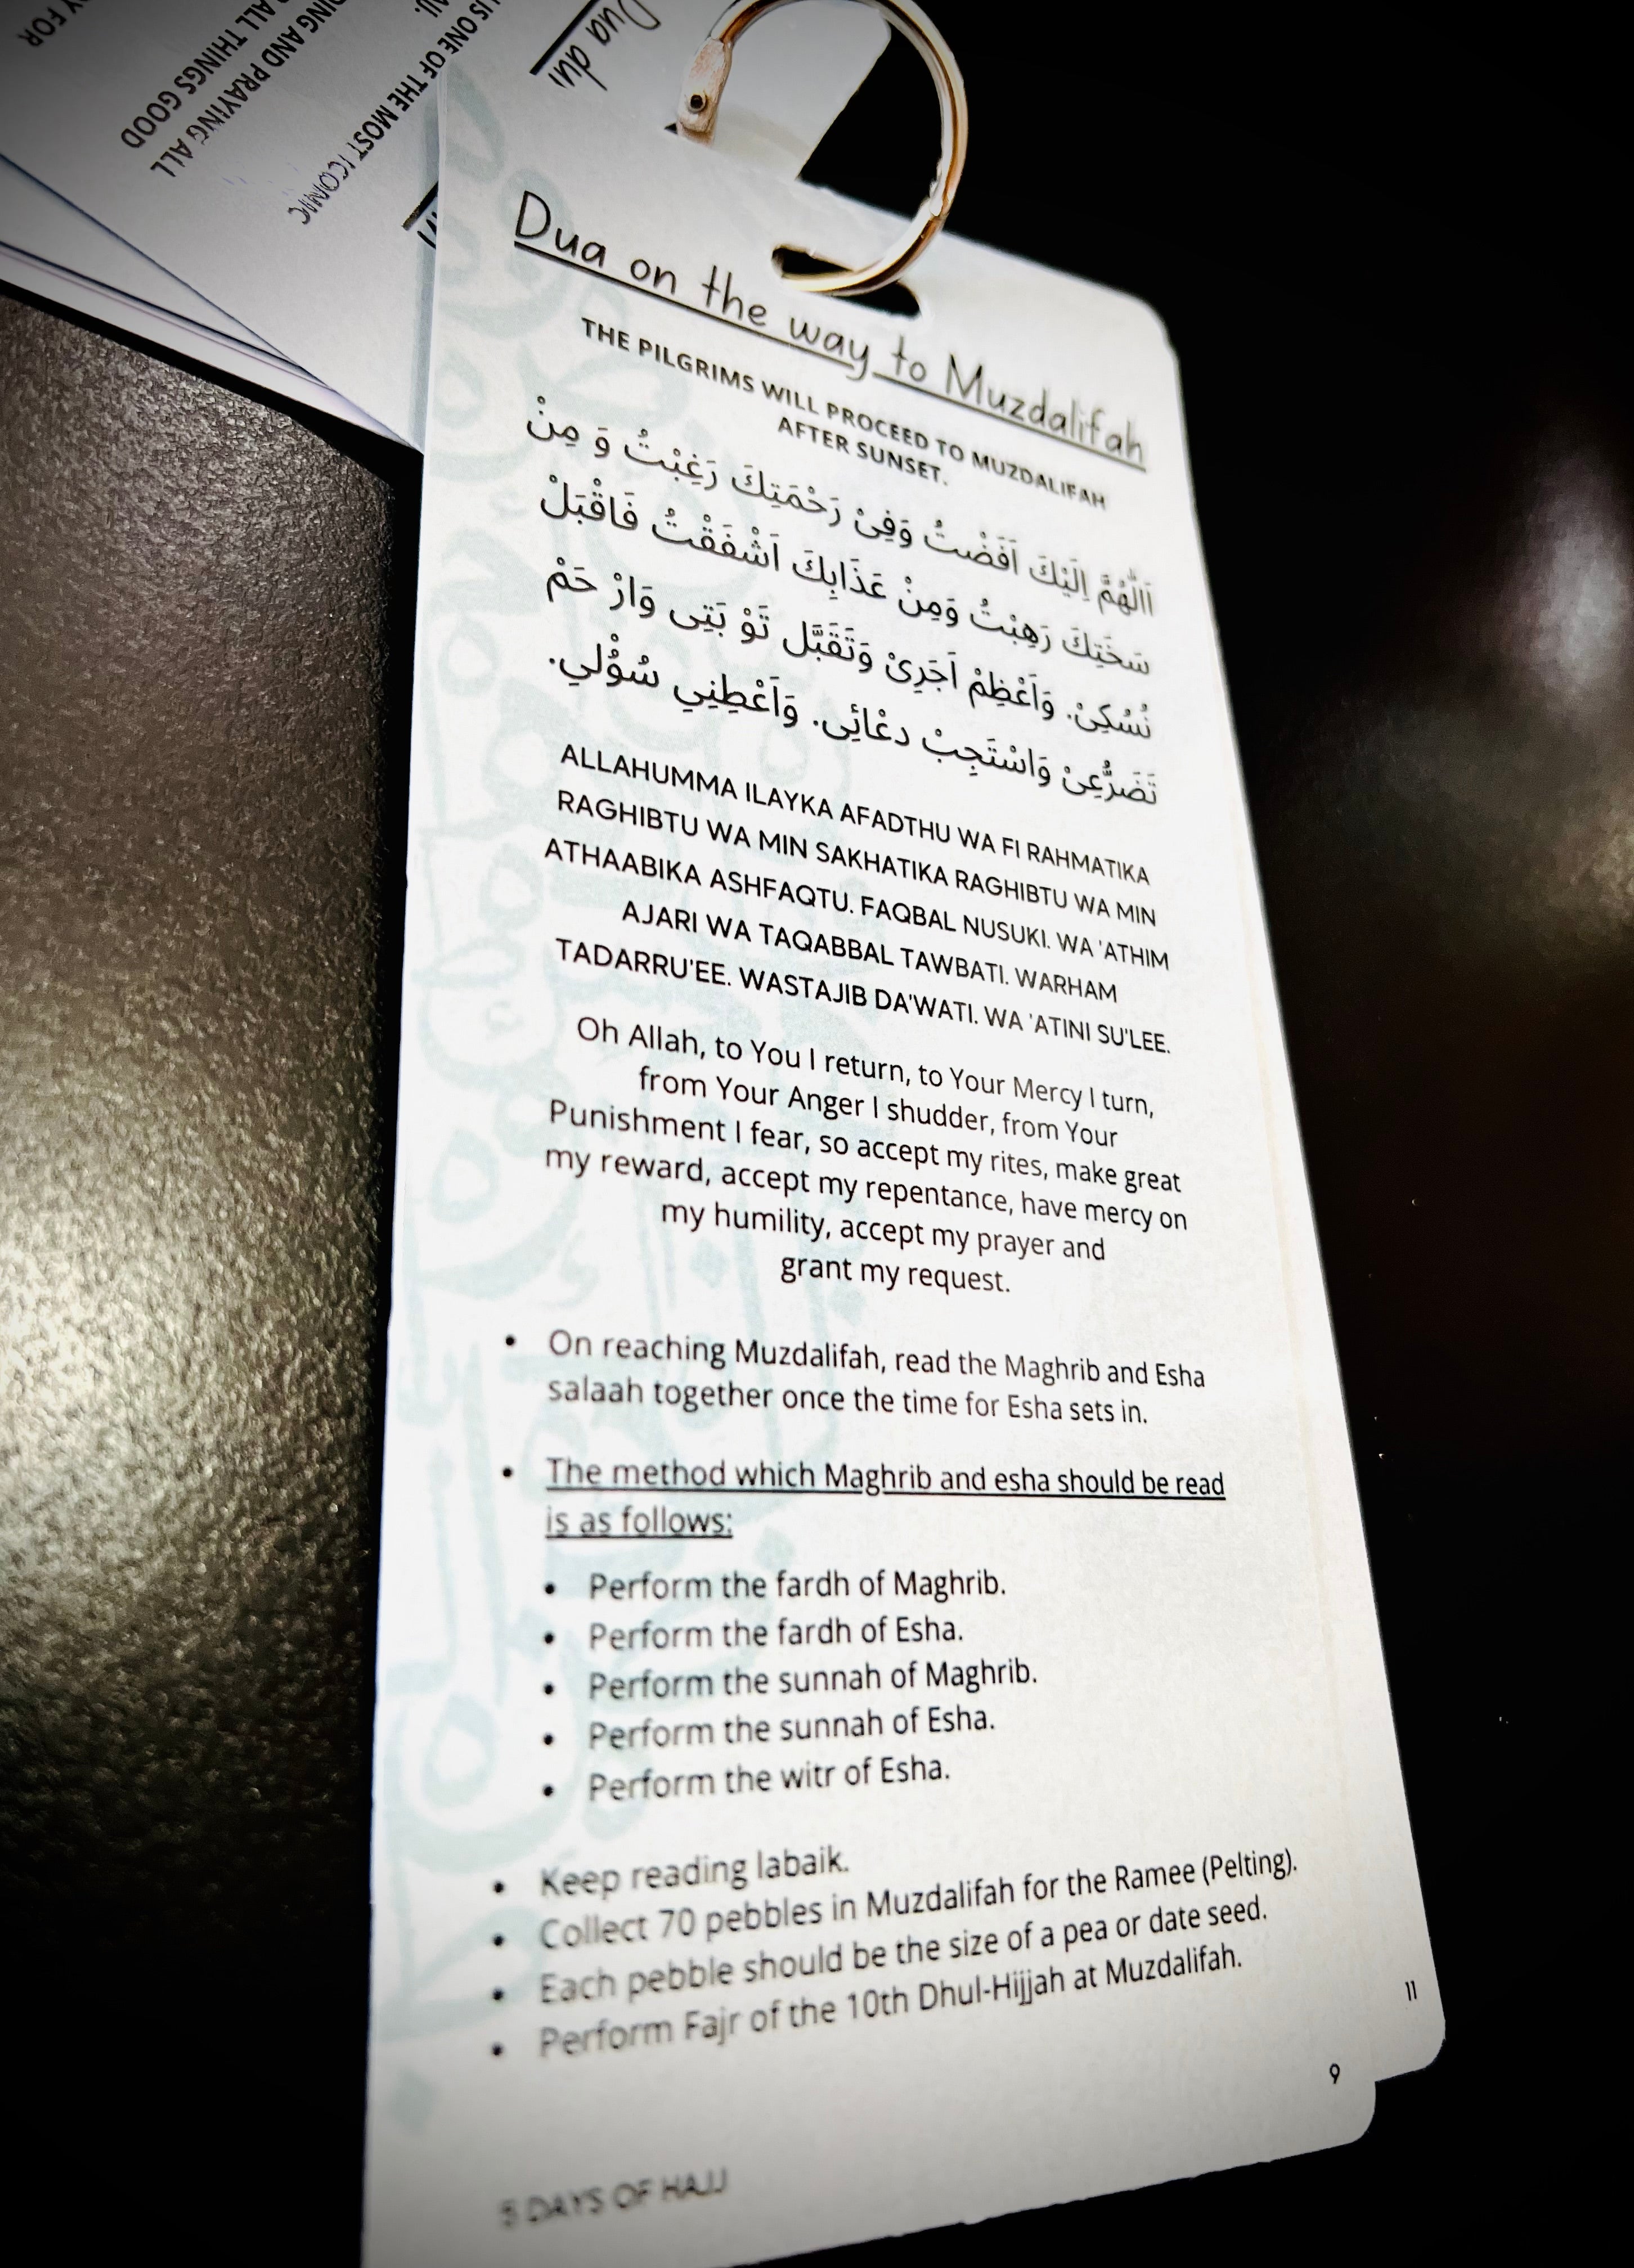 Y FOR
ALL THINGS GOOD
ING AND PRAYING ALL
IS ONE OF THE MOST ICONIC
Dua du
Dua on the way to Muzdalifah
THE PILGRIMS WILL PROCEED TO MUZDALIFAH
AFTER SUNSET.
اَللّٰهُمَّ اِلَيْكَ اَفَضْتُ وَفِىْ رَحْمَتِكَ رَغِبْتُ وَ مِنْ
سَخَتِكَ رَهِبْتُ وَمِنْ عَذَابِكَ اَشْفَقْتُ فَاقْبَلْ
نُسُكِىْ. وَاَعْظِمْ اَجَرِىْ وَتَقَبَّل تَوْ بَتِى وَارْ حَمْ
تَضَرُّعِىْ وَاسْتَجِبْ دعْائِى. وَاَعْطِنِي سُؤْلي.
ALLAHUMMA ILAYKA AFADTHU WA FI RAHMATIKA
RAGHIBTU WA MIN SAKHATIKA RAGHIBTU WA MIN
ATHAABIKA ASHFAQTU. FAQBAL NUSUKI. WA 'ATHIM
AJARI WA TAQABBAL TAWBATI. WARHAM
TADARRU'EE. WASTAJIB DA'WATI. WA 'ATINI SU'LEE.
Oh Allah, to You I return, to Your Mercy I turn,
from Your Anger I shudder, from Your
Punishment I fear, so accept my rites, make great
my reward, accept my repentance, have mercy on
my humility, accept my prayer and
grant my request.
• On reaching Muzdalifah, read the Maghrib and Esha
salaah together once the time for Esha sets in.
• The method which Maghrib and esha should be read
is as follows:
• Perform the fardh of Maghrib.
• Perform the fardh of Esha.
• Perform the sunnah of Maghrib.
• Perform the sunnah of Esha.
• Perform the witr of Esha.
• Keep reading labaik.
• Collect 70 pebbles in Muzdalifah for the Ramee (Pelting).
• Each pebble should be the size of a pea or date seed.
• Perform Fajr of the 10th Dhul-Hijjah at Muzdalifah.
11
9
5 DAYS OF HAJJ